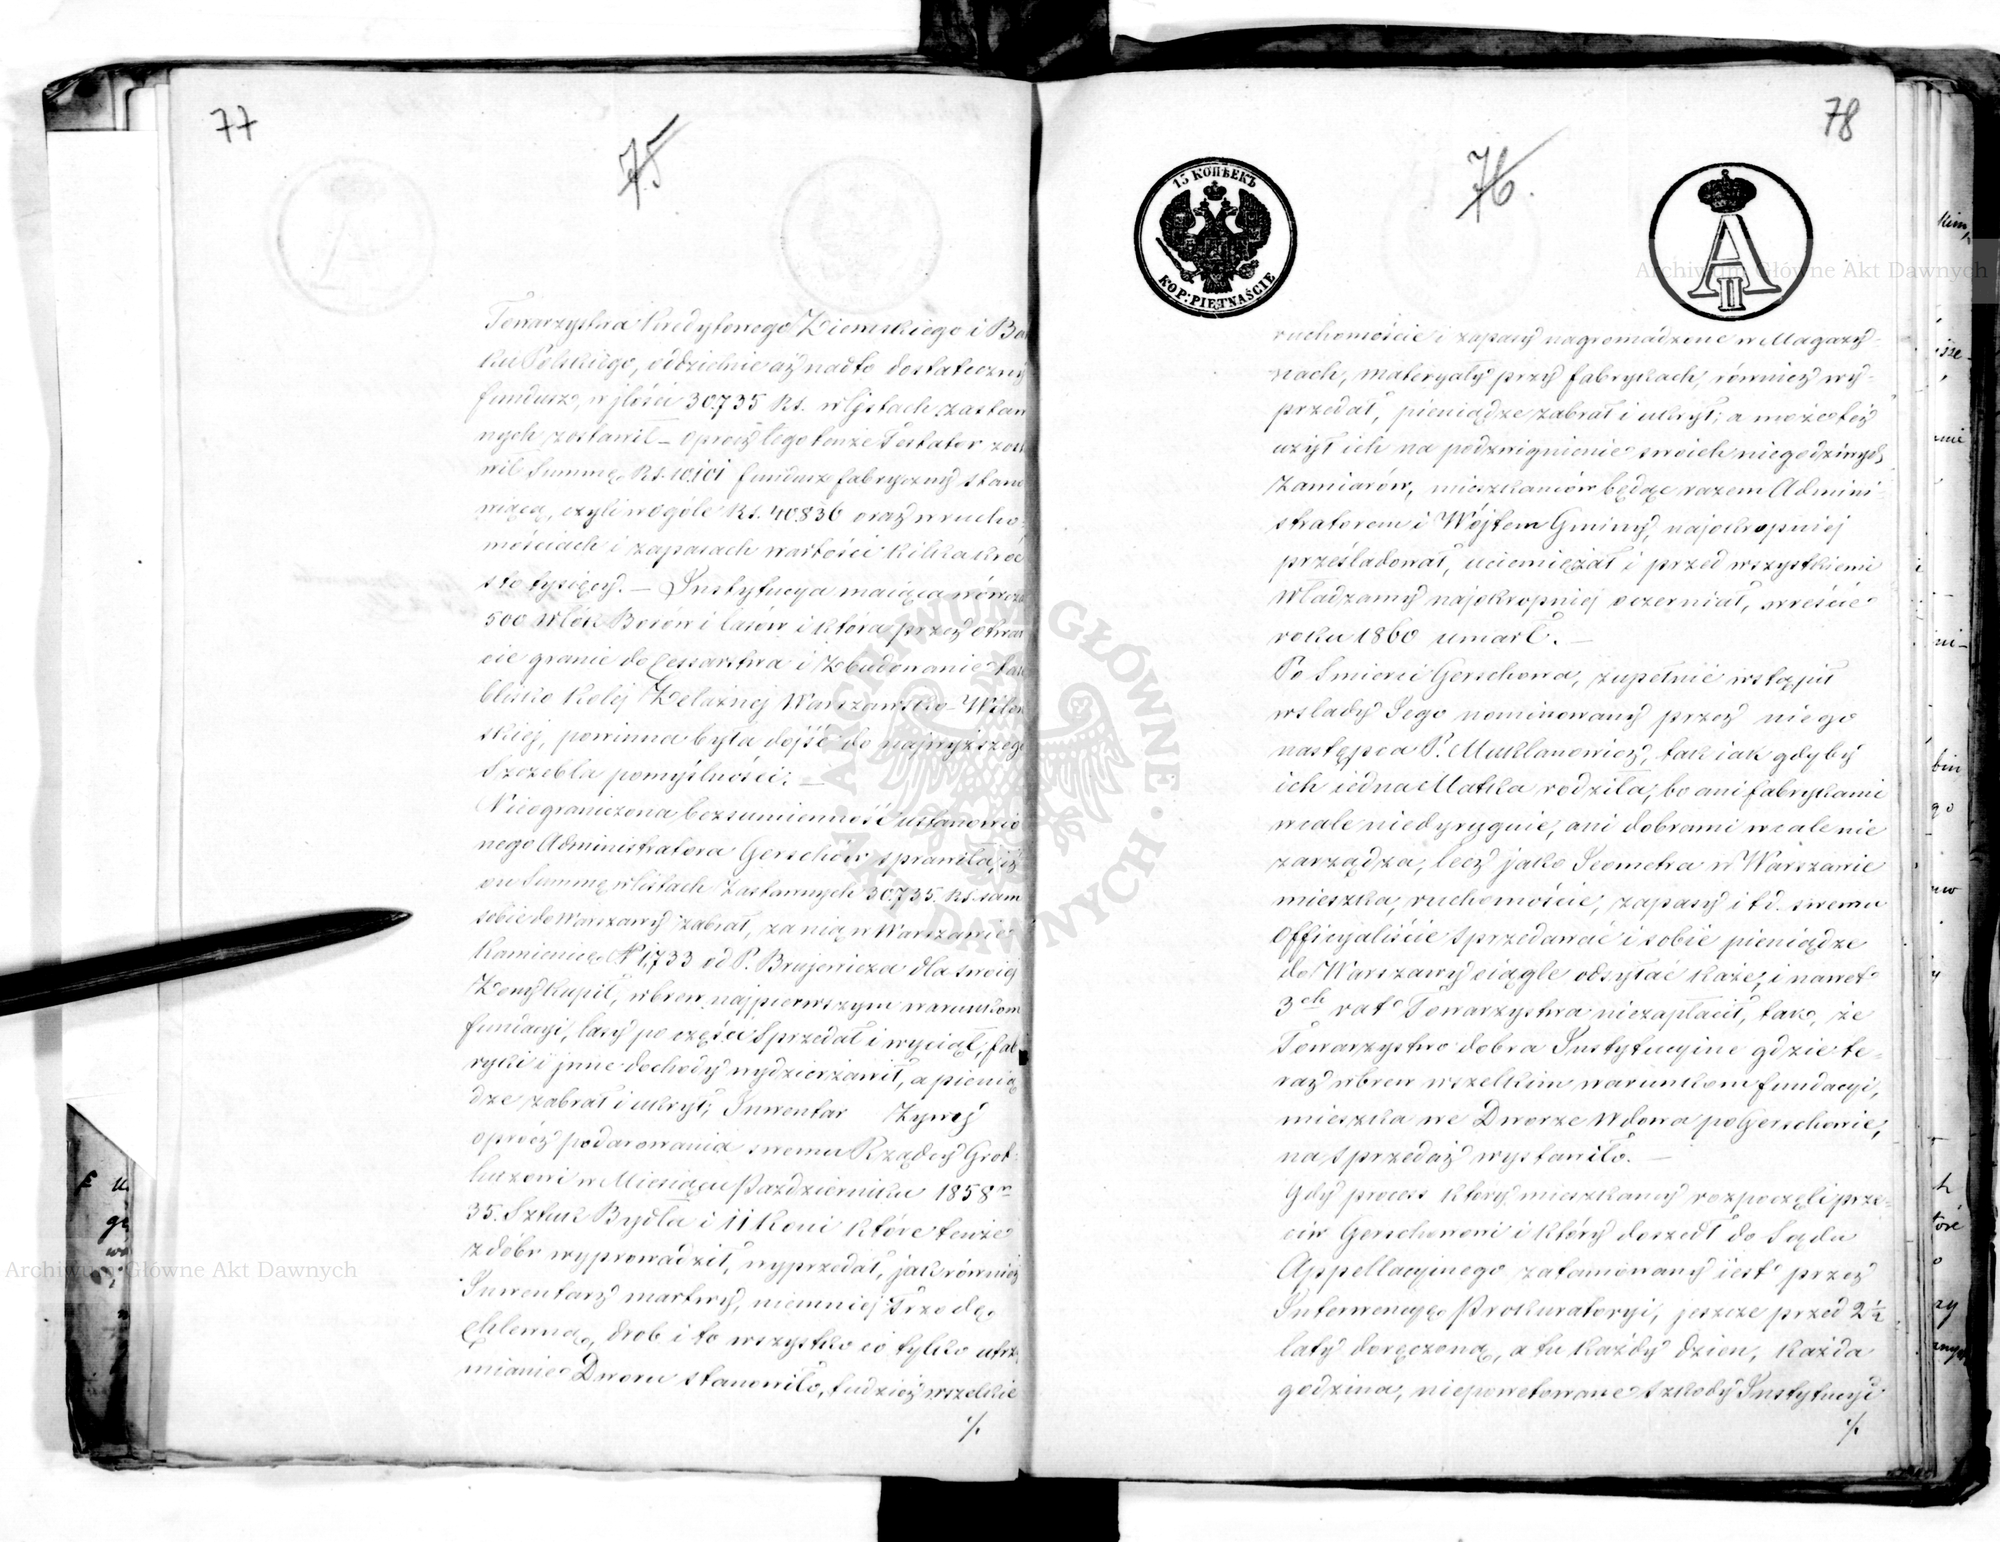 77
75
Towarzystwa Kredytowego Ziemskiego i Ba
ku Polskiego, oddzielnie aż nadto dostateczny
fundusz, w jlości 30.735 Rs. w listach zastaw
nych zostawił – oprócz tego tenże Testator zos
wił Summę Rs. 10.101 fundusz fabryczny stano
wiącą, czyli w ogóle Rs. 40.836 oraz w rucho-
mościach i zapasach wartości kilkakroć
sto tysięcy. – Instytucya maiąca wówcza
500 włók Borów i lasów i która przez otwar
cie granic do Cessarstwa i zbudowanie tak
blisko Kolej Żelaznej Warszawsko-Wileń
skiej, powinna była dojść do najwyższego
szczebla pomyślności; –
Nieograniczona bezsumienność ustanowio
nego Administratora Gerschów sprawiła, iż
on Summę w listach Zastawnych 30.735. Rs. sam
sobie do Warszawy zabrał, za nią w Warszawie
Kamienicę № 1,733 od P. Brujewicza dla swoiej
Żony kupił, wbrew najpierwszym warunkom
fundacyi, lasy po części sprzedał i wyciął; fab
ryki i jnne dochody wydzierżawił, a pienią
dze zabrał i ukrył; Inwentarz Żywy
oprócz podarowania swemu Rządcy Grot-
huzowi w Miesiącu Październiku 1858 r.
35. Sztuk Bydła i 11 Koni które tenże
z dóbr wyprowadził, wyprzedał, jak również
Inwentarz martwy, niemniej Trzodę
chlewną, drób i to wszystko co tylko utrzy
manie Dworu stanowiło, tudzież wszelkie
·/.
78
76.
15 КОПѢЕКЪ
KOP: PIĘTNAŚCIE
A II
ruchomoście i zapasy nagromadzone w Magazy-
nach, materyały przy fabrykach, również wy-
przedał, pieniądze zabrał i ukrył; a może też
użył ich na podzwignienie swoich niegodziwych
Zamiarów, mieszkańców będąc razem Admini-
stratorem i Wójtem Gminy, najokropniej
prześladował, uciemiężał i przed wszystkiemi
władzamy najokropniej oczerniał, wreście
roku 1860 umarł. –
Po Smierci Gerschowa, zupełnie wstąpił
w slady Jego nominowany przez niego
następca P. Muklanowicz, tak iak gdyby
ich iedna Matka rodziła; bo ani fabrykami
wcale niedyryguie, ani dobrami wcale nie
zarządza; lecz jako Jeometra w Warszawie
mieszka, ruchomoście, zapasy i t.d. swemu
Officyaliście sprzedawać i sobie pieniądze
do Warszawy ciągle odsyłać każe, i nawet
3ch rat Towarzystwa niezapłacił, tak, że
Towarzystwo dobra Instytucyine gdzie te-
raz wbrew wszelkim warunkom fundacyi,
mieszka we Dworze Wdowa po Gerschowie,
na sprzedaż wystawiło. –
Gdy process który mieszkańcy rozpoczęli prze-
ciw Gerschowowi i który doszedł do Sądu
Appellacyinego zatamowany iest przez
Interwencyę Prokuratoryi, jeszcze przed 2½
laty doręczoną, a tu każdy dzień, każda
godzina, niepowetowane szkody Instytucyi
·/.
Archiwum Główne Akt Dawnych
Archiwum Główne Akt Dawnych
ARCHIWUM GŁÓWNE AKT DAWNYCH